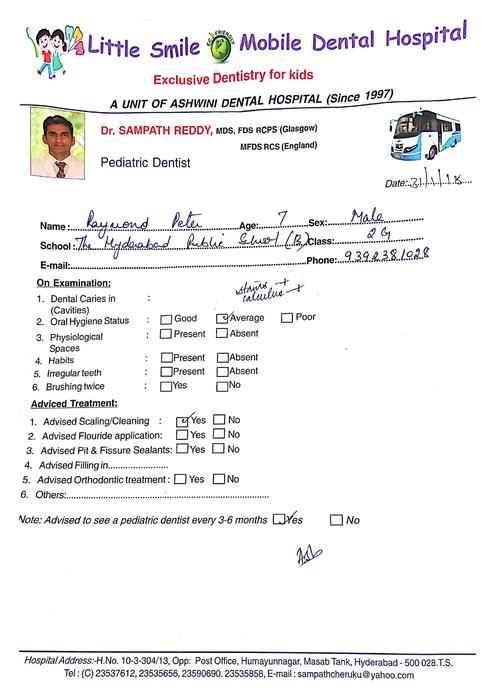 Little Smile ECO FRIENDLY Mobile Dental Hospital
Exclusive Dentistry for kids
A UNIT OF ASHWINI DENTAL HOSPITAL (Since 1997)
Dr. SAMPATH REDDY, MDS, FDS RCPS (Glasgow)
MFDS RCS (England)
Pediatric Dentist
Date: 31/1/18
Name: Raymond Peter Age: 7 Sex: Male
School: The Hyderabad Public School (B) Class: 2 G
E-mail: Phone: 9392381028
On Examination:
stains +
calculus +
1. Dental Caries in :
(Cavities)
2. Oral Hygiene Status : Good Average Poor
3. Physiological : Present Absent
Spaces
4. Habits : Present Absent
5. Irregular teeth : Present Absent
6. Brushing twice : Yes No
Adviced Treatment:
1. Advised Scaling/Cleaning : Yes No
2. Advised Flouride application: Yes No
3. Advised Pit & Fissure Sealants: Yes No
4. Advised Filling in......................
5. Advised Orthodontic treatment : Yes No
6. Others:..........................................................................
Note: Advised to see a pediatric dentist every 3-6 months Yes No
Hospital Address:-H.No. 10-3-304/13, Opp: Post Office, Humayunnagar, Masab Tank, Hyderabad - 500 028.T.S.
Tel : (C) 23537612, 23535656, 23590690. 23535858, E-mail : sampathcheruku@yahoo.com